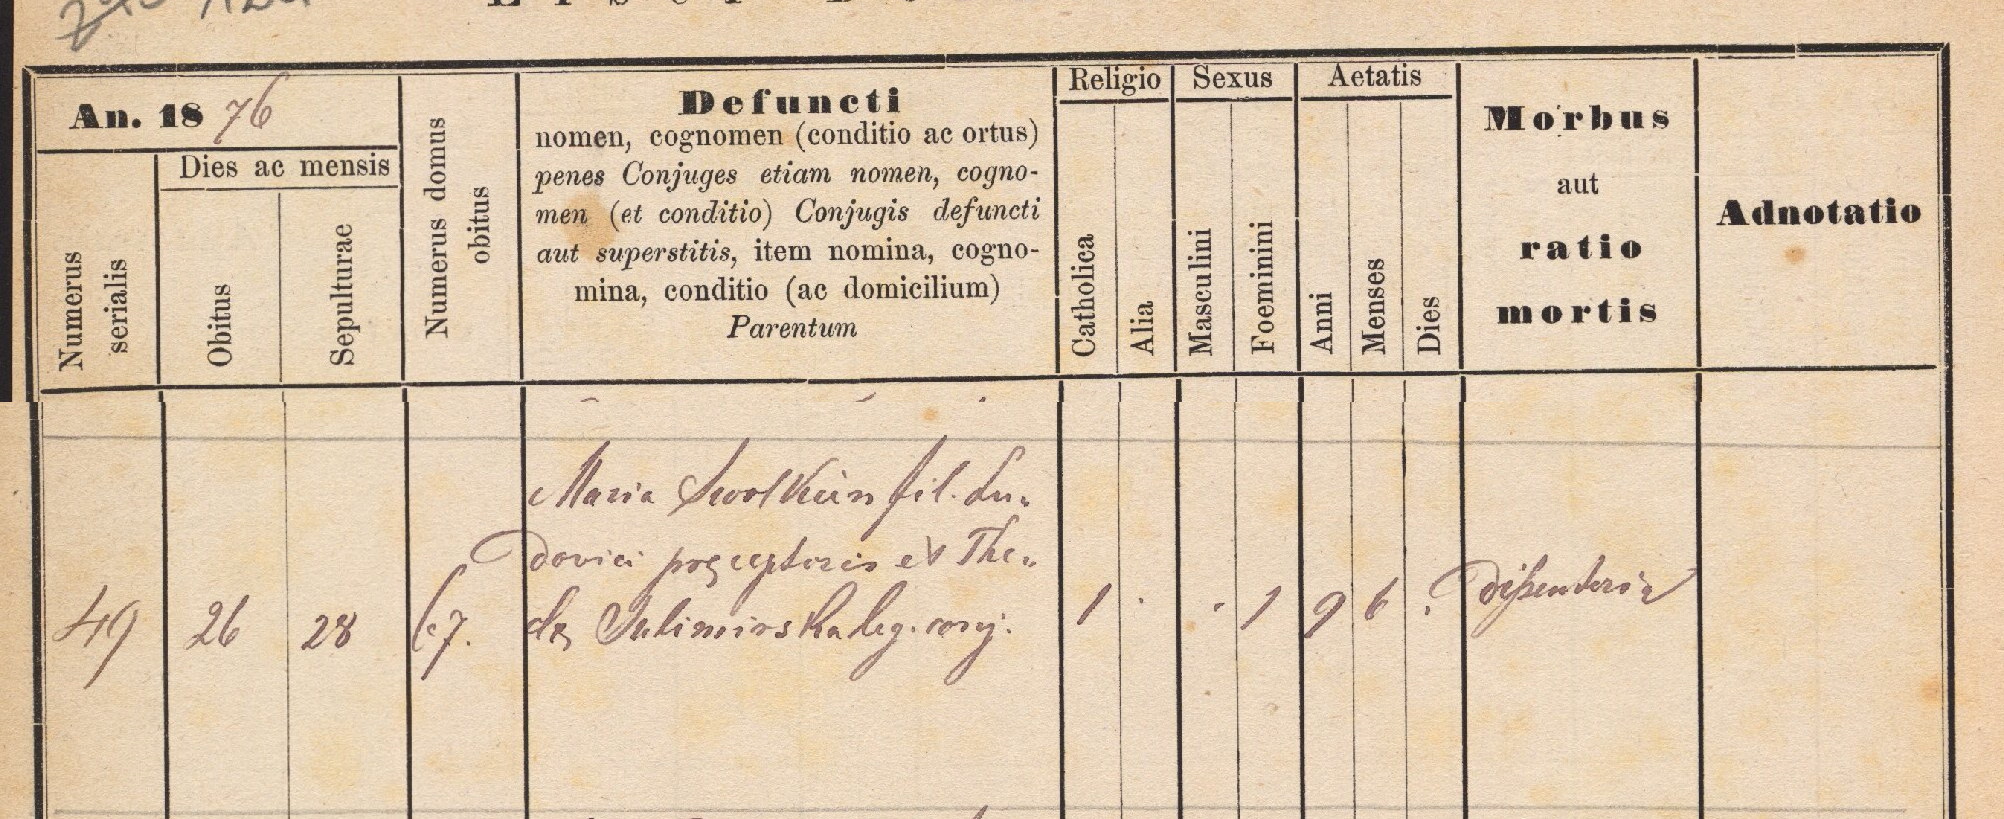 An. 18 76
Dies ac mensis
Numerus serialis
Obitus
Sepulturae
Numerus domus obitus
Defuncti
nomen, cognomen (conditio ac ortus)
penes Conjuges etiam nomen, cogno-
men (et conditio) Conjugis defuncti
aut superstitis, item nomina, cogno-
mina, conditio (ac domicilium)
Parentum
Religio
Catholica
Alia
Sexus
Masculini
Foeminini
Aetatis
Anni
Menses
Dies
Morbus
aut
ratio
mortis
Adnotatio
Maria Swolkień fil. Lu-
dovici præceptoris et The-
clæ Sulimirska leg. conj.
49 26 28 67. 1 . . 1 9 6 . dißenteria